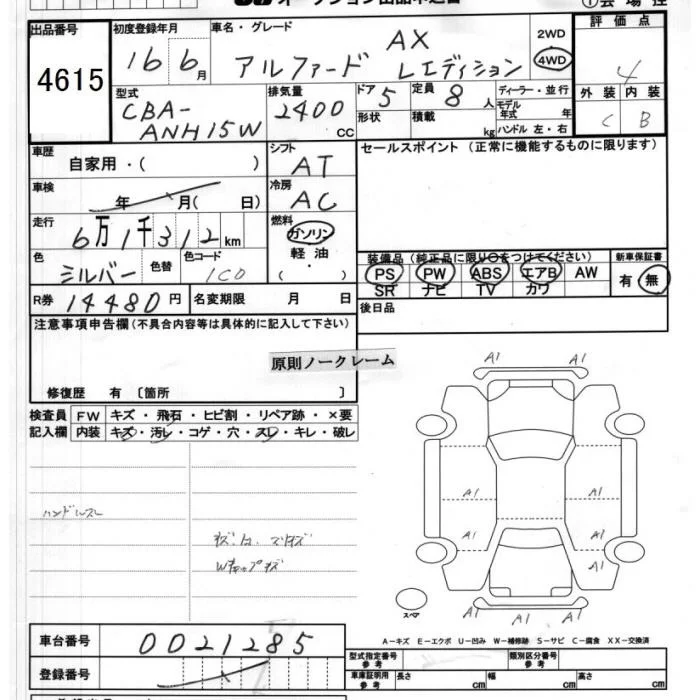 出品番号
4615
初度登録年月
16 6月
車名・グレード
AX
アルファード Lエディション
2WD
4WD
評価点
4
型式
CBA-
ANH15W
排気量
2400
CC
ドア 5
定員 8 人
形状
積載 kg
ディーラー・並行
モデル年式 年
ハンドル 左・右
外装 内装
C B
車歴
自家用・( )
シフト
AT
セールスポイント (正常に機能するものに限ります)
車検
年 月( 日)
冷房
AC
走行
6万1千312km
燃料
ガソリン
軽油
・
( )
色
シルバー
色替
色コード
1C0
装備品 (純正品に限り○をつけてください)
新車保証書
PS PW ABS エアB AW
有 無
SR ナビ TV カワ
R券 14480円
名変期限 月 日
後日品
注意事項申告欄(不具合内容等は具体的に記入して下さい)
原則ノークレーム
修復歴 有 〔箇所 〕
検査員 FW キズ・飛石・ヒビ割・リペア跡・×要
記入欄 内装 キズ・汚レ・コゲ・穴・スレ・キレ・破レ
ハンドルスレ
Wキャップキズ
A1 A1
A1 A1
A1 A1
A1
A1 A1
スペア
A-キズ E-エクボ U-凹み W-補修跡 S-サビ C-腐食 XX-交換済
車台番号
0021285
登録番号
型式指定番号 参考
類別区分番号 参考
車庫証明用 参考
長さ cm 幅 cm 高さ cm